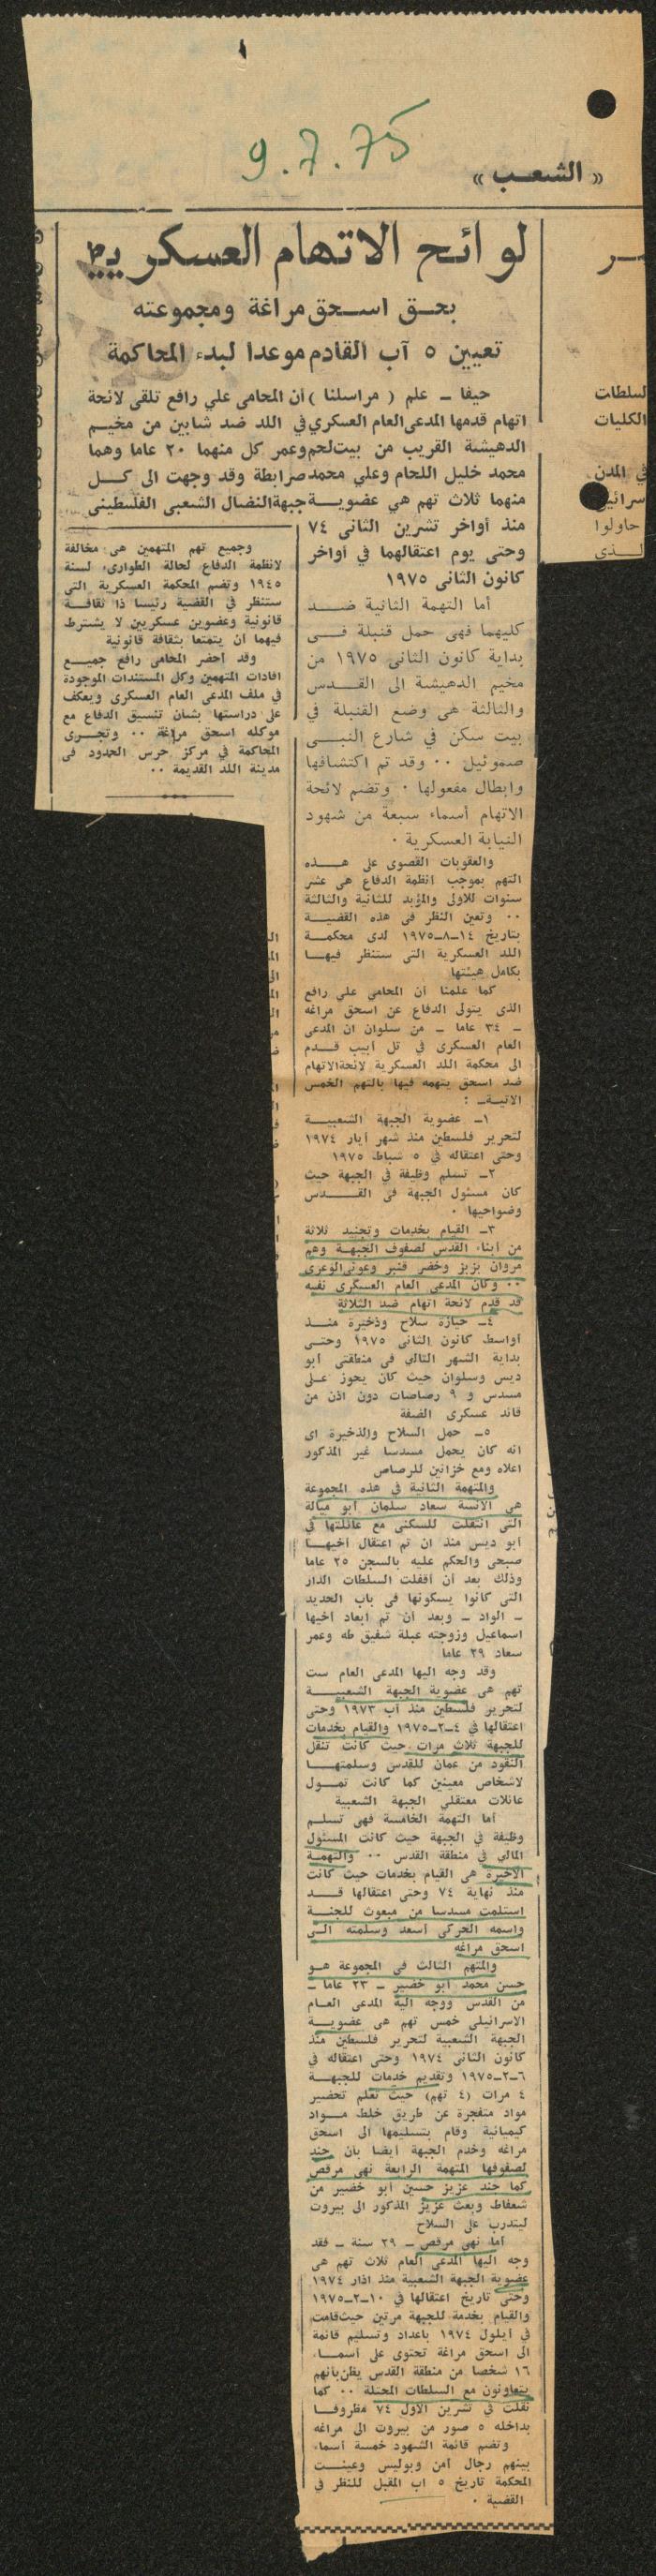 9.7.75
« الشعب »
لوائح الاتهام العسكرية
بحق اسحق مراغة ومجموعته
تعيين ٥ آب القادم موعدا لبدء المحاكمة
حيفا ـ علم ( مراسلنا ) أن المحامي علي رافع تلقى لائحة
اتهام قدمها المدعى العام العسكري في اللد ضد شابين من مخيم
الدهيشة القريب من بيت لحم وعمر كل منهما ٢٠ عاما وهما
محمد خليل اللحام وعلي محمد صرابطة وقد وجهت الى كل
منهما ثلاث تهم هي عضوية جبهة النضال الشعبي الفلسطيني
منذ أواخر تشرين الثاني ٧٤
وحتى يوم اعتقالهما في أواخر
كانون الثاني ١٩٧٥
أما التهمة الثانية ضد
كليهما فهي حمل قنبلة في
بداية كانون الثاني ١٩٧٥ من
مخيم الدهيشة الى القدس
والثالثة هي وضع القنبلة في
بيت سكن في شارع النبي
صموئيل ٠٠ وقد تم اكتشافها
وابطال مفعولها ٠ وتضم لائحة
الاتهام أسماء سبعة من شهود
النيابة العسكرية ٠
والعقوبات القصوى على هذه
التهم بموجب أنظمة الدفاع هي عشر
سنوات للاولى والمؤبد للثانية والثالثة
٠٠ وتعين النظر في هذه القضية
بتاريخ ١٤ـ٨ـ١٩٧٥ لدى محكمة
اللد العسكرية التي ستنظر فيها
بكامل هيئتها
كما علمنا أن المحامي علي رافع
الذي يتولى الدفاع عن اسحق مراغه
ـ ٣٤ عاما ـ من سلوان ان المدعى
العام العسكري في تل أبيب قدم
الى محكمة اللد العسكرية لائحة الاتهام
ضد اسحق يتهمه فيها بالتهم الخمس
الاتية :
١ـ عضوية الجبهة الشعبية
لتحرير فلسطين منذ شهر أيار ١٩٧٤
وحتى اعتقاله في ٥ شباط ١٩٧٥
٢ـ تسلم وظيفة في الجبهة حيث
كان مسئول الجبهة في القدس
وضواحيها ٠
٣ـ القيام بخدمات وتجنيد ثلاثة
من أبناء القدس لصفوف الجبهة وهم
مروان بزبز وخضر قنبر وعوني الوعري
٠٠ وكان المدعي العام العسكري نفسه
قد قدم لائحة اتهام ضد الثلاثة
٤ـ حيازة سلاح وذخيرة منذ
أواسط كانون الثاني ١٩٧٥ وحتى
بداية الشهر التالي في منطقتي أبو
ديس وسلوان حيث كان يحوز على
مسدس و ٩ رصاصات دون اذن من
قائد عسكري الضفة
٥ـ حمل السلاح والذخيرة اي
انه كان يحمل مسدسا غير المذكور
اعلاه ومع خزانين للرصاص
والمتهمة الثانية في هذه المجموعة
هي الآنسة سعاد سلمان أبو ميالة
التي انتقلت للسكنى مع عائلتها في
أبو ديس منذ ان تم اعتقال أخيها
صبحي والحكم عليه بالسجن ٢٥ عاما
وذلك بعد أن أقفلت السلطات الدار
التي كانوا يسكونها في باب الحديد
ـ الواد ـ وبعد أن تم ابعاد أخيها
اسماعيل وزوجته عبلة شفيق طه وعمر
سعاد ٢٩ عاما
وقد وجه اليها المدعي العام ست
تهم هي عضوية الجبهة الشعبية
لتحرير فلسطين منذ آب ١٩٧٣ وحتى
اعتقالها في ٤ـ٢ـ١٩٧٥ والقيام بخدمات
للجبهة ثلاث مرات حيث كانت تنقل
النقود من عمان للقدس وسلمتها
لاشخاص معينين كما كانت تمول
عائلات معتقلي الجبهة الشعبية
أما التهمة الخامسة فهي تسلم
وظيفة في الجبهة حيث كانت المسئول
المالي في منطقة القدس ٠٠ والتهمة
الاخيرة هي القيام بخدمات حيث كانت
منذ نهاية ٧٤ وحتى اعتقالها قد
استلمت مسدسا من مبعوث للجنة
واسمه الحركي أسعد وسلمته الى
اسحق مراغه
والمتهم الثالث في المجموعة هو
حسن محمد ابو خضير ـ ٢٣ عاما ـ
من القدس ووجه اليه المدعي العام
الاسرائيلي خمس تهم هي عضوية
الجبهة الشعبية لتحرير فلسطين منذ
كانون الثاني ١٩٧٤ وحتى اعتقاله في
٦ـ٢ـ١٩٧٥ وتقديم خدمات للجبهة
٤ مرات (٤ تهم) حيث تعلم تحضير
مواد متفجرة عن طريق خلط مواد
كيميائية وقام بتسليمها الى اسحق
مراغه وخدم الجبهة أيضا بان جند
لصفوفها المتهمة الرابعة نهى مرقص
كما جند عزيز حسين أبو خضير من
شعفاط وبعث عزيز المذكور الى بيروت
ليتدرب على السلاح
أما نهى مرقص ـ ٢٩ سنة ـ فقد
وجه اليها المدعي العام ثلاث تهم هي
عضوية الجبهة الشعبية منذ اذار ١٩٧٤
وحتى تاريخ اعتقالها في ١٠ـ٢ـ١٩٧٥
والقيام بخدمة للجبهة مرتين حيث قامت
في أيلول ١٩٧٤ باعداد وتسليم قائمة
الى اسحق مراغة تحتوي على أسماء
١٦ شخصا من منطقة القدس يظن بأنهم
يتعاونون مع السلطات المحتلة ٠٠ كما
نقلت في تشرين الاول ٧٤ مظروفا
بداخله ٥ صور من بيروت الى مراغه
وتضم قائمة الشهود خمسة أسماء
بينهم رجال أمن وبوليس وعينت
المحكمة تاريخ ٥ اب المقبل للنظر في
القضية ٠
وجميع تهم المتهمين هي مخالفة
لانظمة الدفاع لحالة الطوارىء لسنة
١٩٤٥ وتضم المحكمة العسكرية التي
ستنظر في القضية رئيسا ذا ثقافة
قانونية وعضوين عسكريين لا يشترط
فيهما أن يتمتعا بثقافة قانونية
وقد أحضر المحامي رافع جميع
افادات المتهمين وكل المستندات الموجودة
في ملف المدعي العام العسكري ويعكف
على دراستها بشان تنسيق الدفاع مع
موكله اسحق مراغة ٠٠ وتجري
المحاكمة في مركز حرس الحدود في
مدينة اللد القديمة ٠٠
لسلطات
الكليات
في المدن
حاولوا
لذي